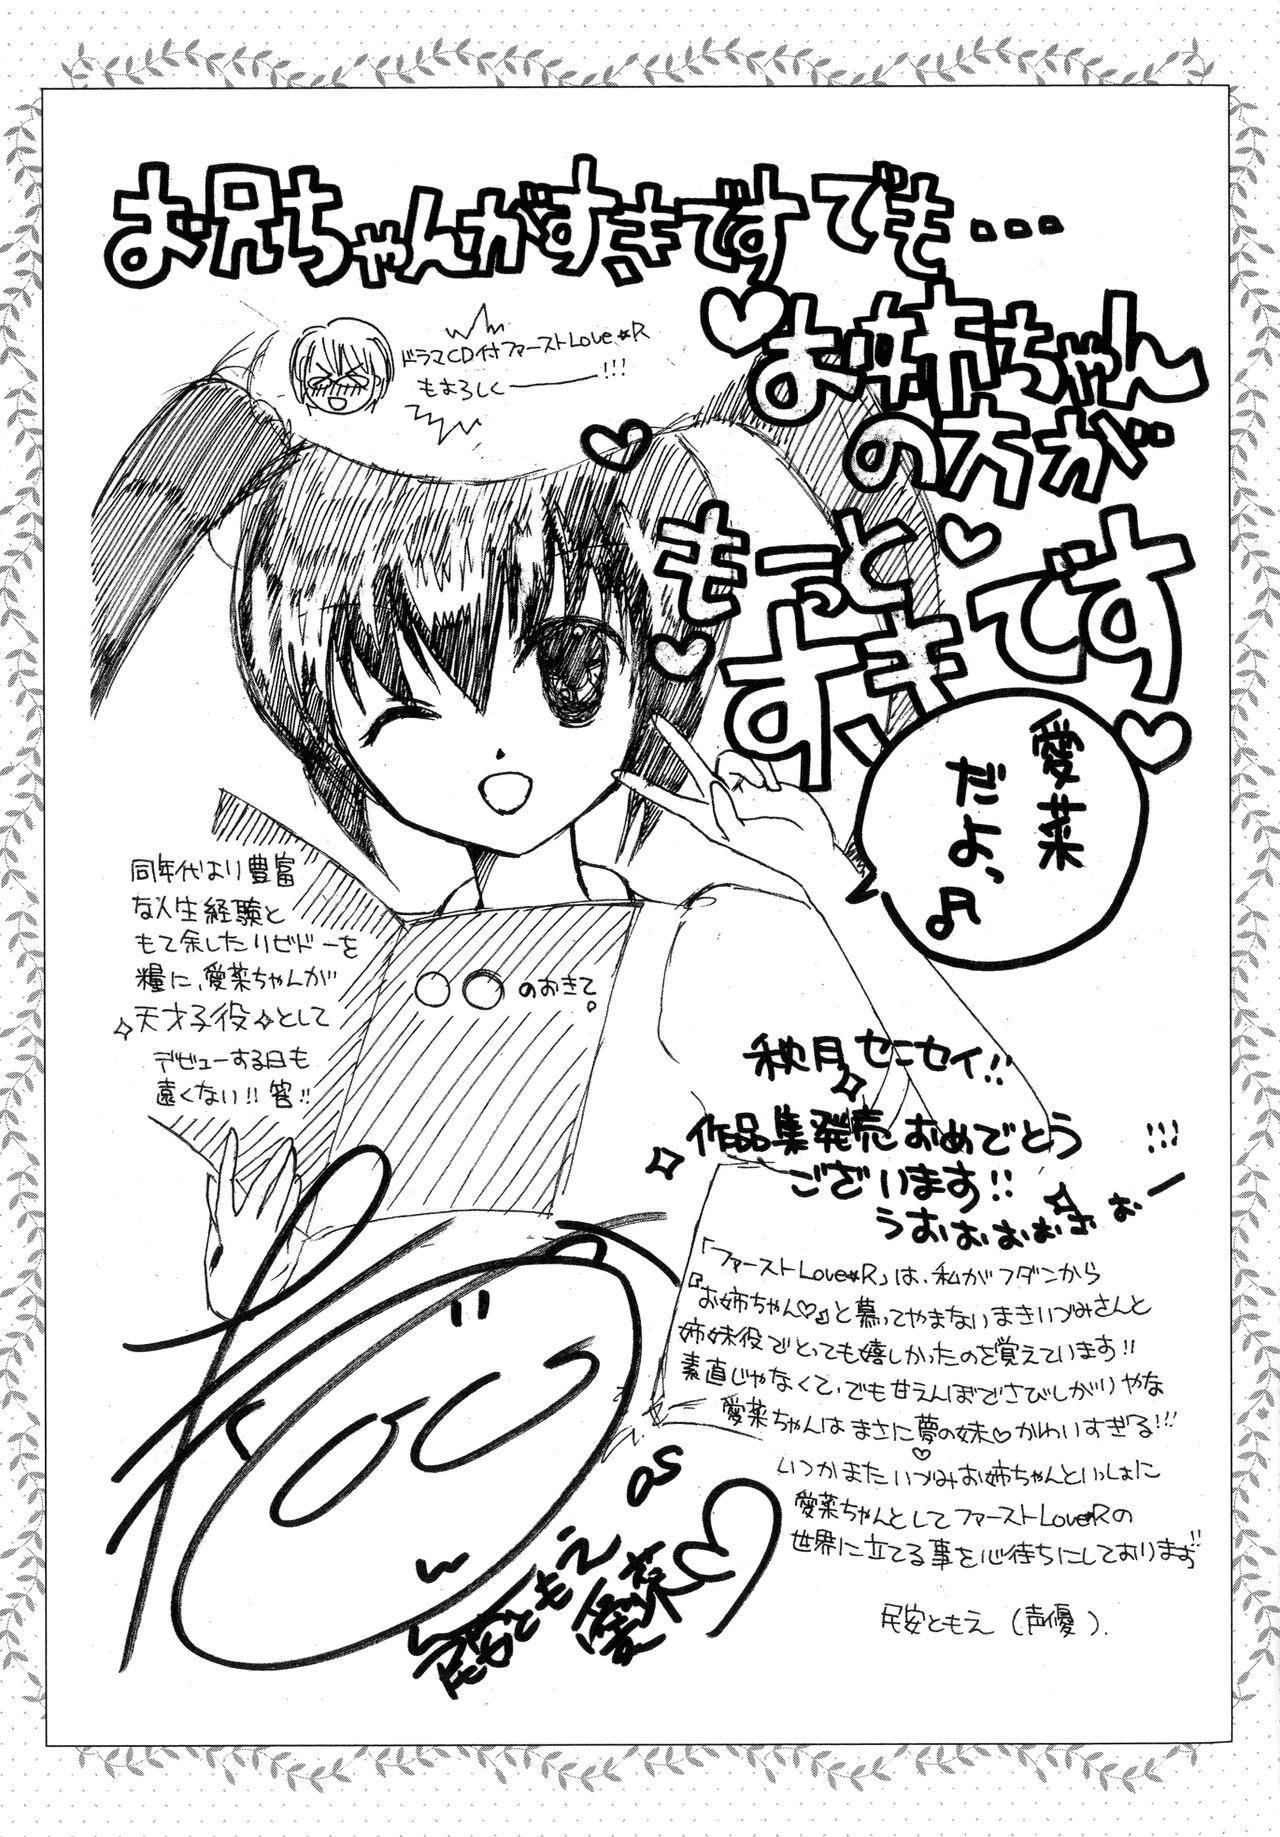 お兄ちゃんがすきですでも・・・
お姉ちゃん
の方が
もーっと
すきです
ドラマCD付ファーストLove☆R
もよろしくーーー!!!
愛菜
だよっ♪
同年代より豊富
な人生経験と
もて余したリビドーを
糧に、愛菜ちゃんが
✧天才子役✧として
デビューする日も
遠くない!!筈!!
○○のおきて。
秋月センセイ!!
作品集発売おめでとう
ございます!!
うおぉぉぉぉぉぉー!!!
「ファーストLove☆R」は、私がフダンから
『お姉ちゃん♡』と慕ってやまないまきいづみさんと
姉妹役でとっても嬉しかったのを覚えています!!
素直じゃなくて、でも甘えんぼでさびしがりやな
愛菜ちゃんはまさに夢の妹♡かわいすぎる!!!
いつかまたいづみお姉ちゃんといっしょに
愛菜ちゃんとしてファーストLove☆Rの
世界に立てる事を心待ちにしております!!
民安ともえ(声優).
as
民安ともえ
愛菜